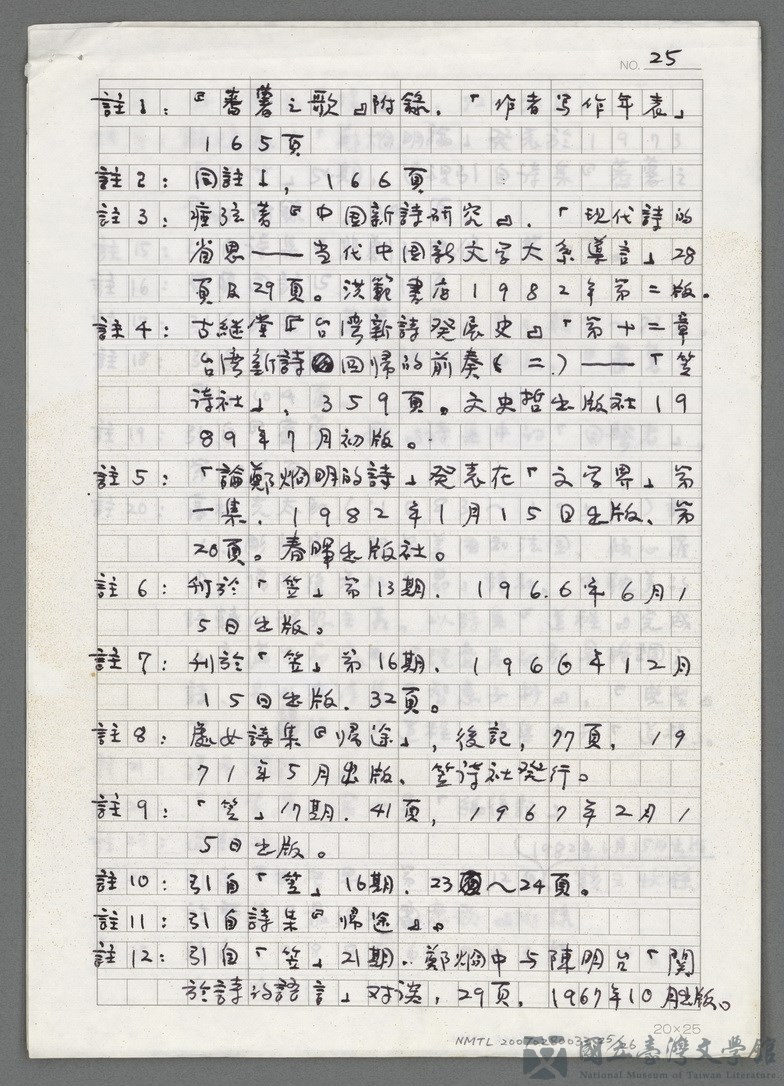 NO. 25
註1：『蕃薯之歌』附錄．「作者写作年表」
165頁
註2：同註1，166頁
註3：瘂弦著『中国新詩研究』．「現代詩的
省思——当代中国新文学大系導言」28
頁及29頁。洪範書店1982年第二版。
註4：古継堂『台湾新詩発展史』「第十二章
台湾新詩回帰的前奏（二）——「笠
詩社」，359頁。文史哲出版社19
89年7月初版。
註5：「論鄭烱明的詩」発表在「文学界」第
一集．1982年1月15日出版、第
20頁。春暉出版社。
註6：刊於「笠」第13期．1966年6月1
5日出版。
註7：刊於「笠」第16期．1966年12月
15日出版．32頁。
註8：處女詩集『帰途』，後記，77頁，19
71年5月出版、笠詩社発行。
註9：「笠」17期．41頁，1967年2月1
5日出版。
註10：引自「笠」16期．23頁～24頁。
註11：引自詩集『帰途』。
註12：引自「笠」21期．鄭烱明与陳明台「関
於詩的語言」对談，29頁．1967年10月出版。
20×25
國立臺灣文學館
National Museum of Taiwan Literature